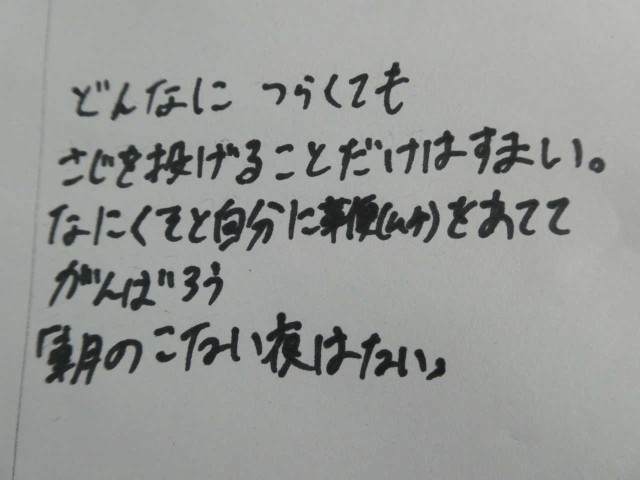 どんなに つらくても
さじを投げることだけはすまい。
なにくそと自分に鞭(ムチ)をあてて
がんばろう
「朝のこない夜はない」